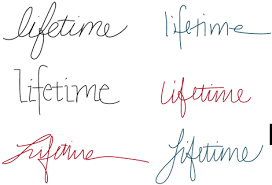 lifetime lifetime
lifetime lifetime
lifetime lifetime